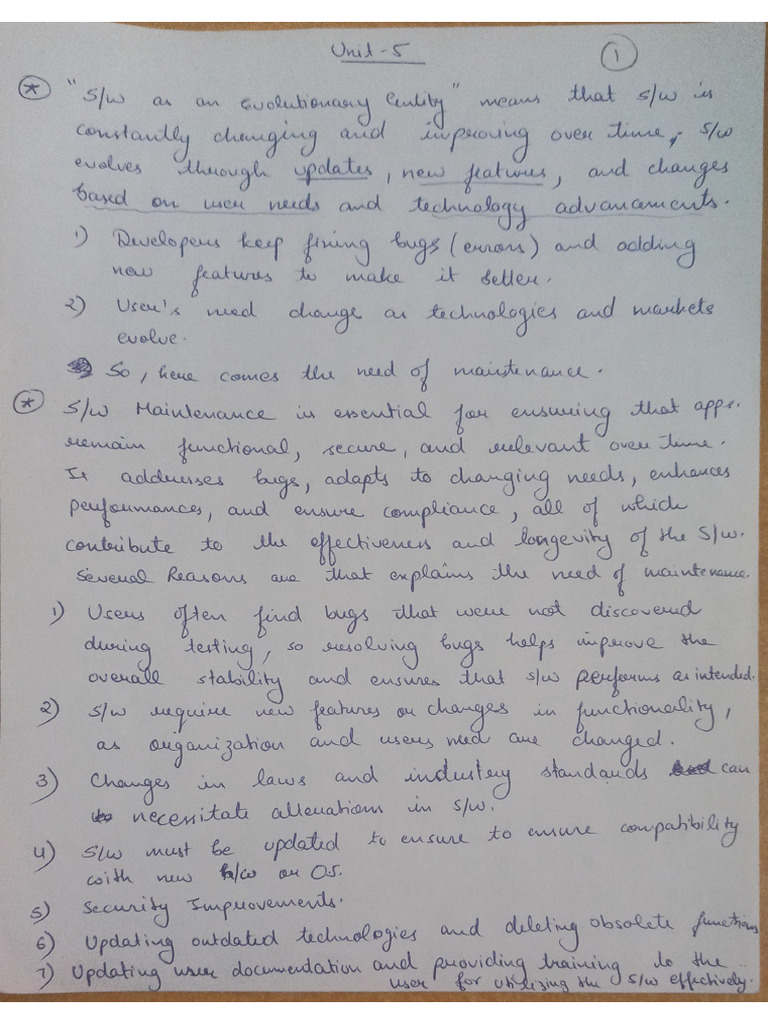 Unit-5
1
* "S/w as an Evolutionary Entity" means that S/w is
constantly changing and improving over time, S/w
evolves through updates, new features, and changes
based on user needs and technology advancements.
1) Developers keep fixing bugs (errors) and adding
new features to make it better.
2) User's need change as technologies and markets
evolve.
So, here comes the need of maintenance.
* S/w Maintenance is essential for ensuring that apps.
remain functional, secure, and relevant over time.
It addresses bugs, adapts to changing needs, enhances
performances, and ensure compliance, all of which
contribute to the effectiveness and longevity of the S/w.
Several Reasons are that explains the need of maintenance.
1) Users often find bugs that were not discovered
during testing, so resolving bugs helps improve the
overall stability and ensures that S/w performs as intended.
2) S/w require new features or changes in functionality,
as organization and users need are changed.
3) Changes in laws and industry standards can
necessitate alterations in S/w.
4) S/w must be updated to ensure to ensure compatibility
with new h/w or O.S.
5) Security Improvements.
6) Updating outdated technologies and deleting obsolete functions
7) Updating user documentation and providing training to the
user for utilizing the S/w effectively.